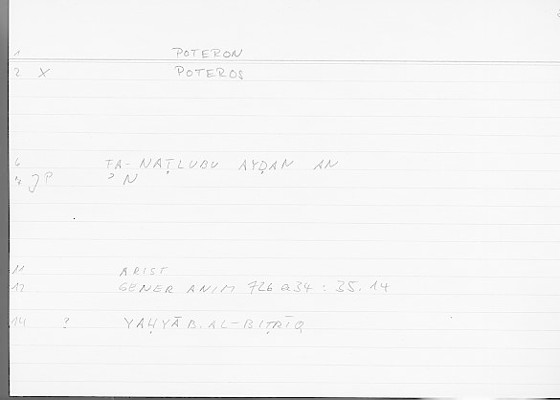 1 POTERON
2 X POTEROS
6 FA- NAṬLUBU AYḌAN AN
7 JP ʾN
11 ARIST
12 GENER ANIM 726a34 : 35.14
14 ? YAḤYĀ B. AL-BIṬRĪQ